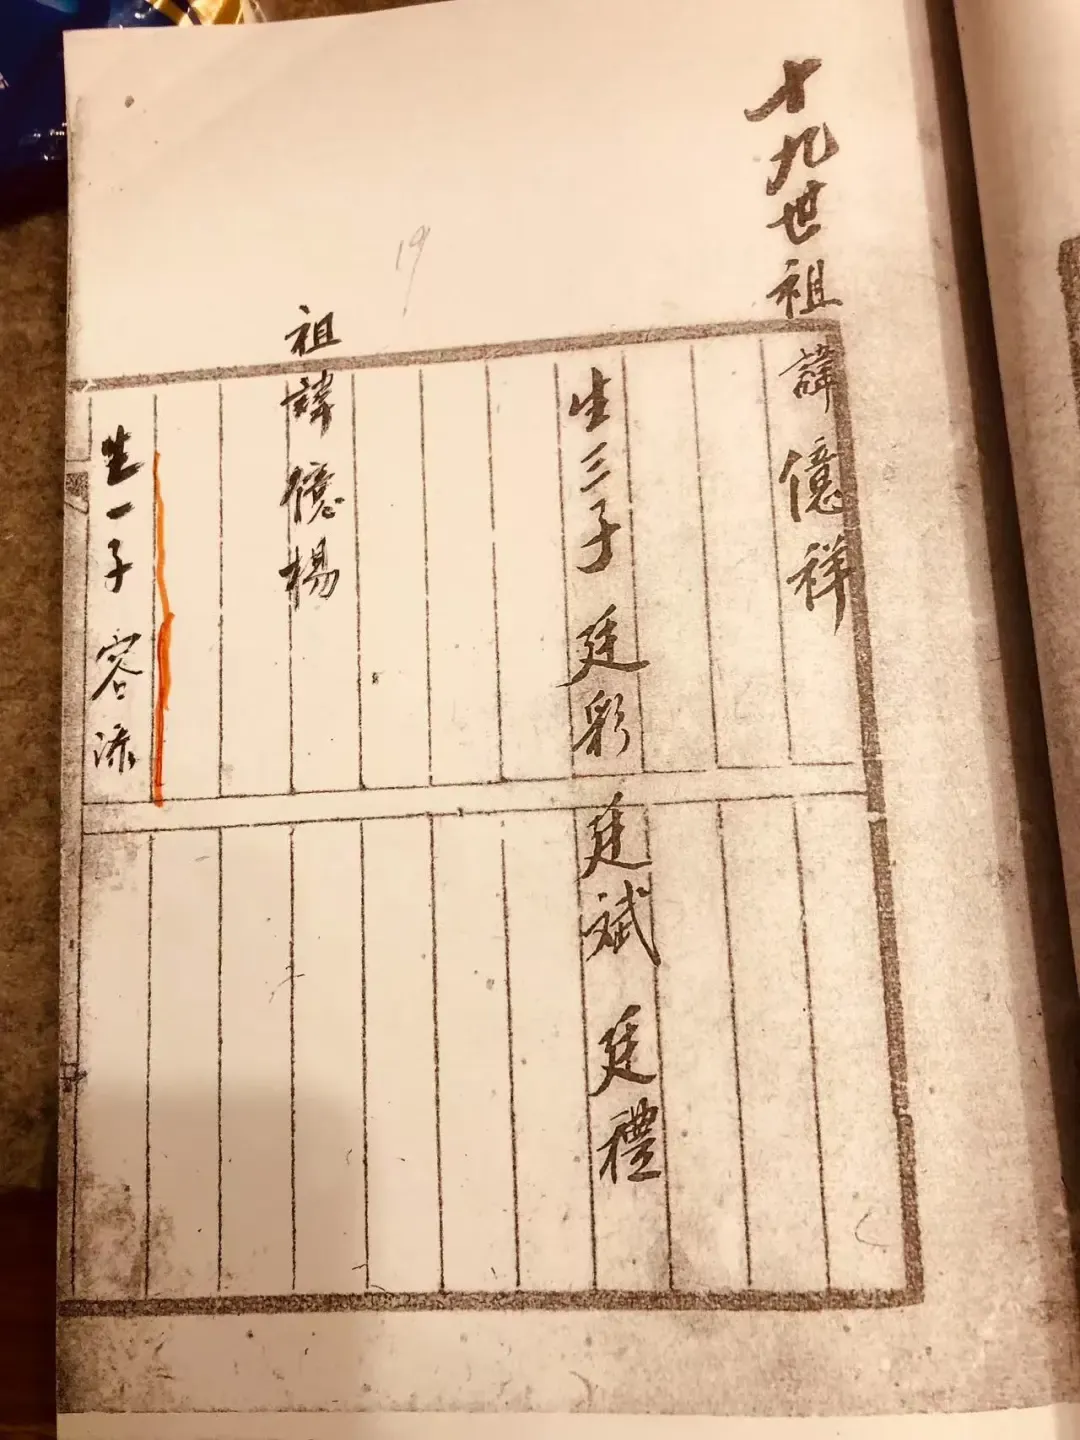 十九世祖諱億祥
生三子廷彩廷斌廷禮
祖諱億楊
生一子容添
19